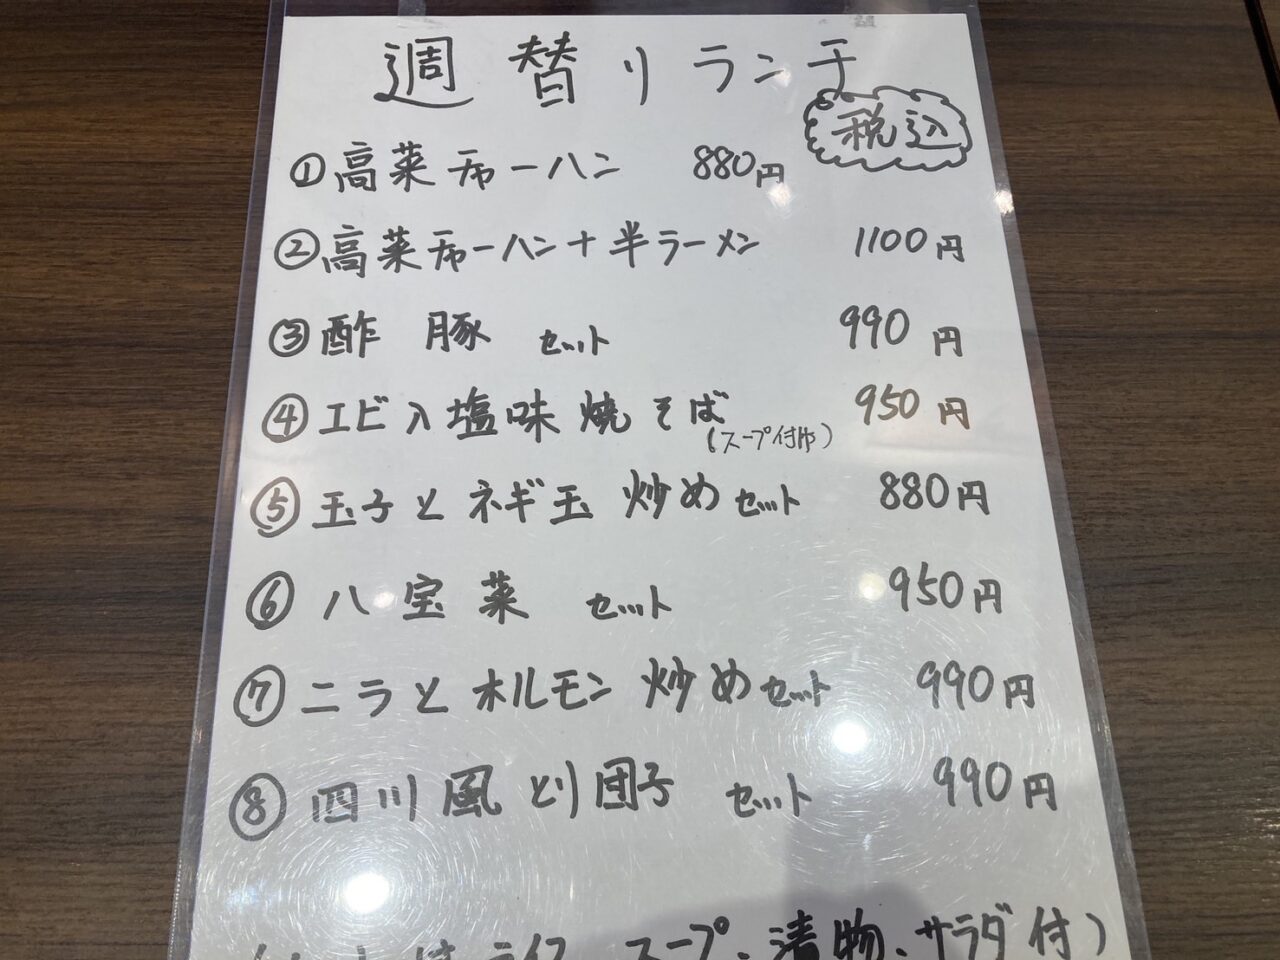 週替りランチ
税込
①高菜チャーハン 880円
②高菜チャーハン+半ラーメン 1100円
③酢豚 セット 990円
④エビ入塩味焼そば 950円
(スープ付)
⑤玉子とネギ玉炒めセット 880円
⑥八宝菜 セット 950円
⑦ニラとホルモン炒めセット 990円
⑧四川風とり団子 セット 990円
ライス、スープ、漬物、サラダ付)